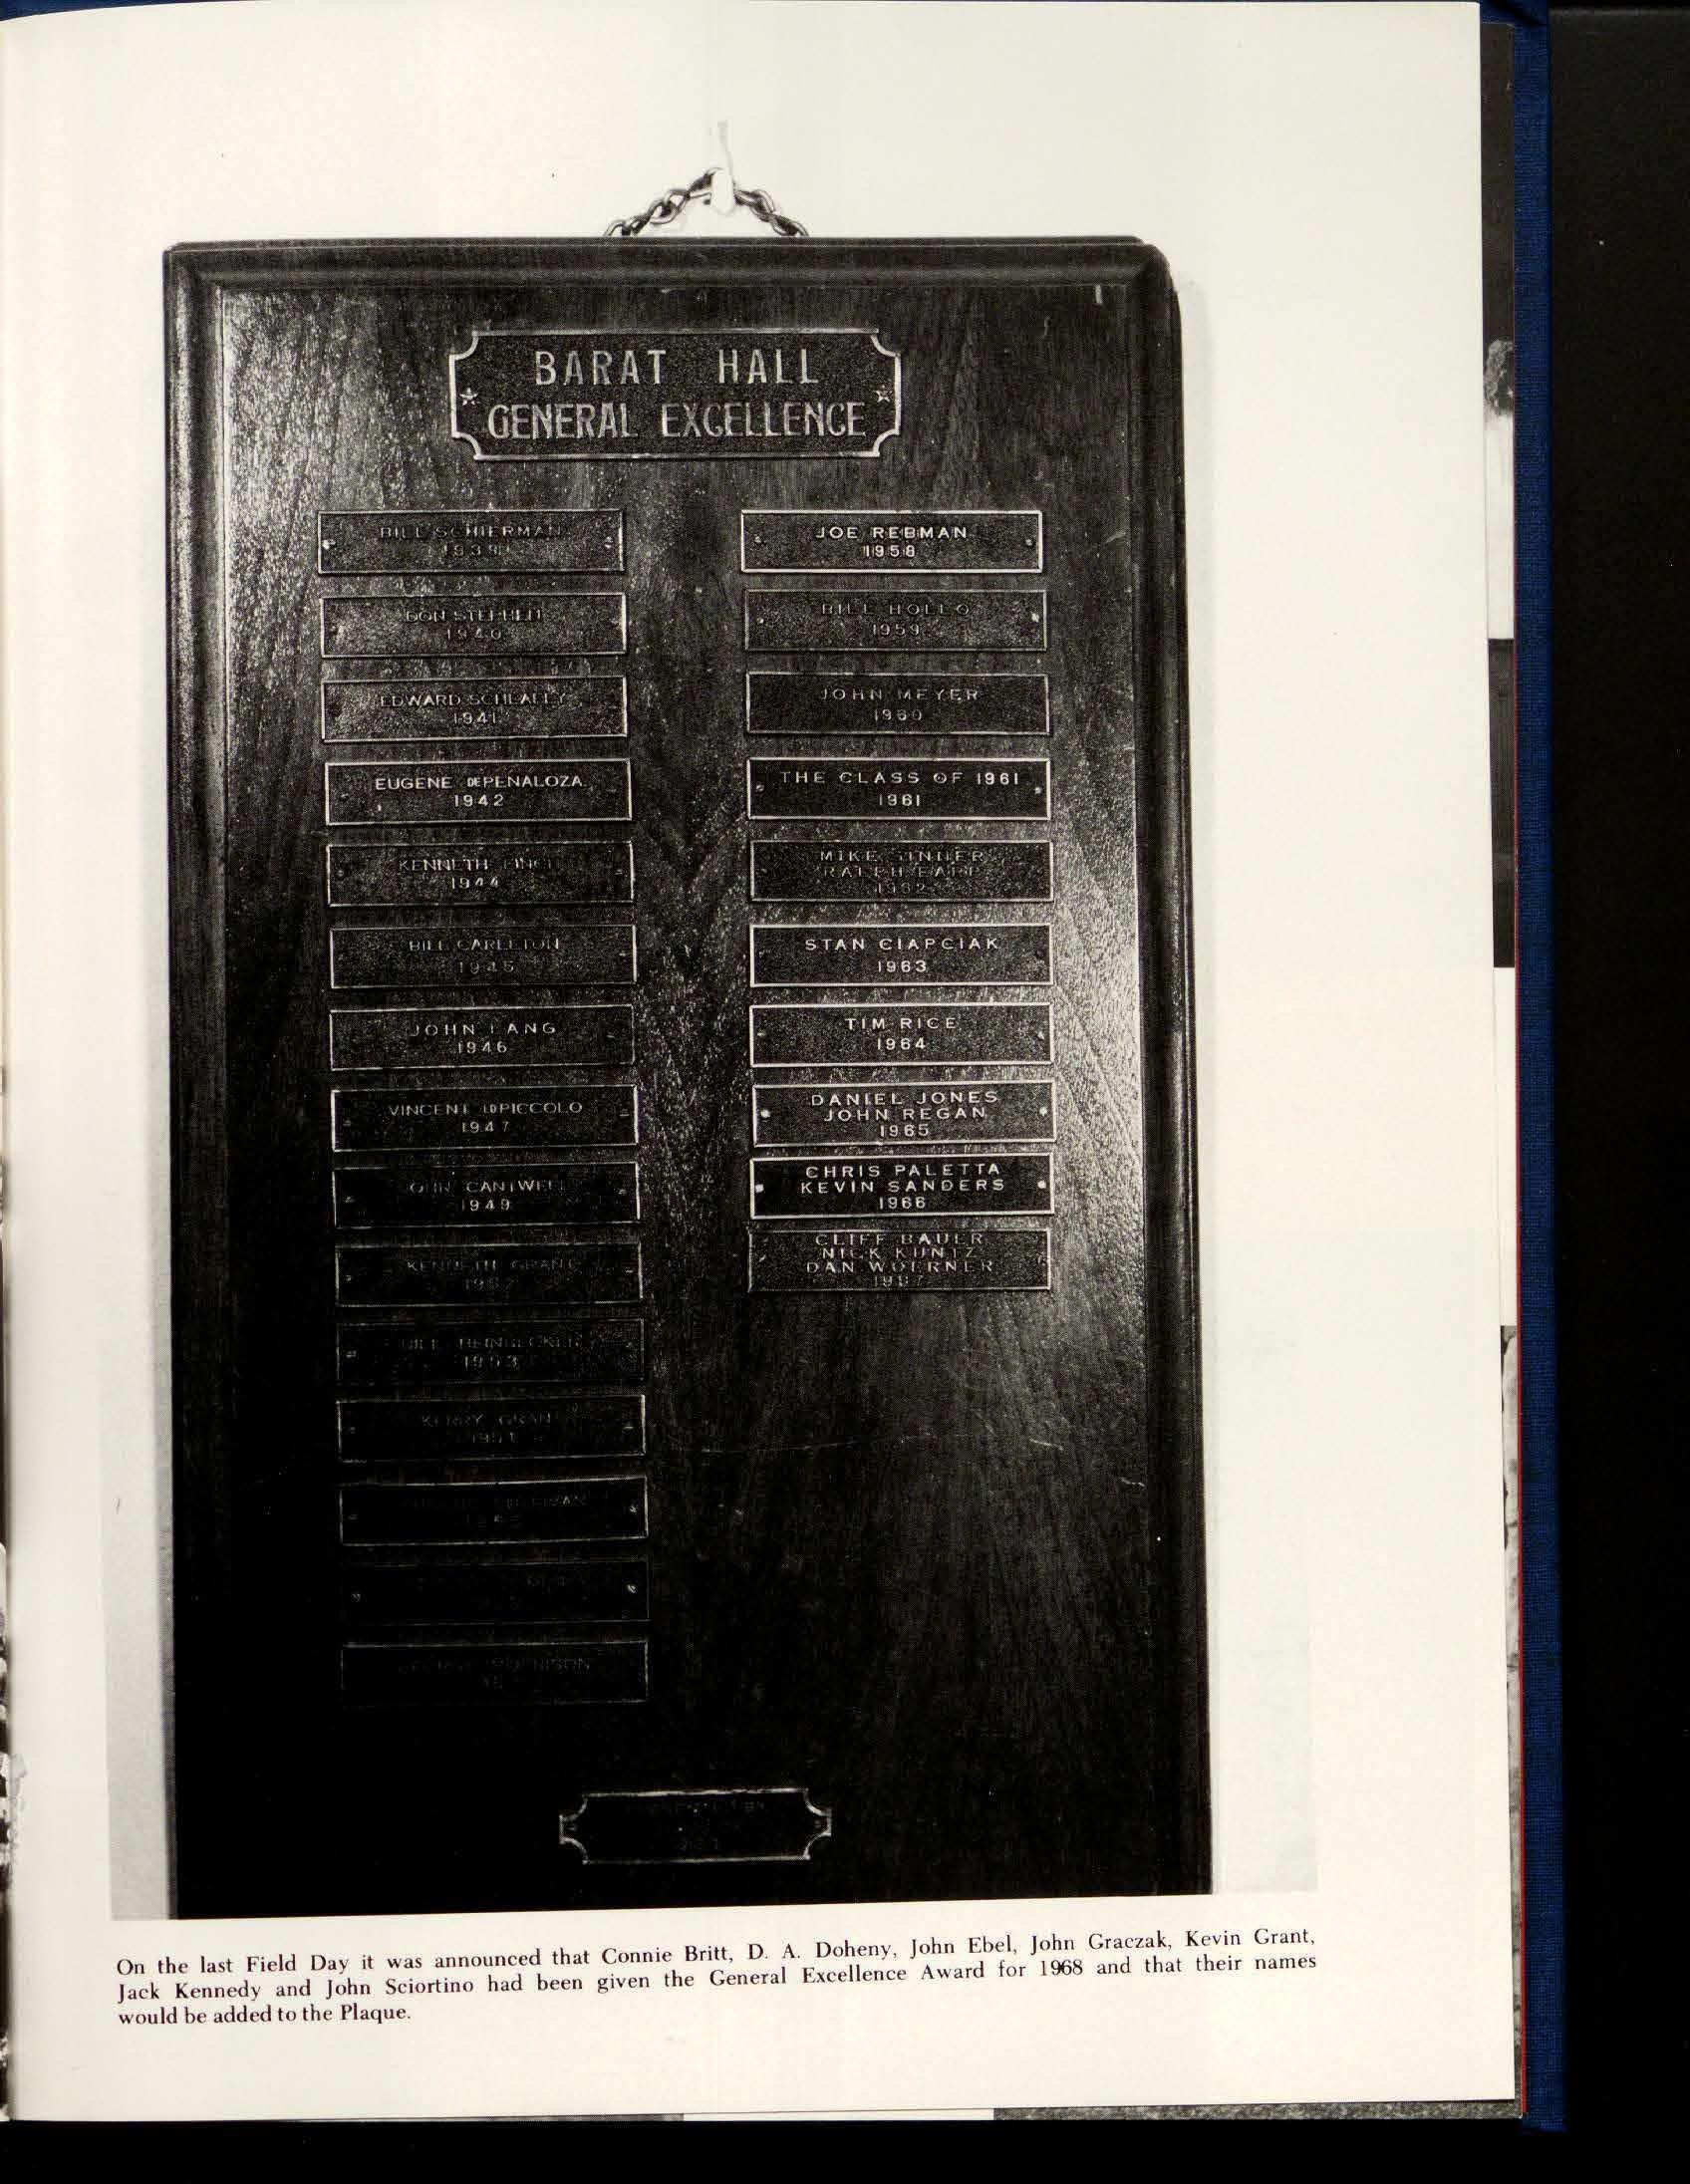 BARAT HALL
GENERAL EXCELLENCE
BILL SCHIERMAN
1939
DON STEPHEN
1940
EDWARD SCHLAFLY
1941
EUGENE DEPENALOZA
1942
KENNETH FINCH
1944
BILL CARLETON
1945
JOHN LANG
1946
VINCENT LOPICCOLO
1947
JOHN CANTWELL
1949
KENNETH GRANT
1952
BILL
1953
KERRY GRANT
MORRISON
JOE REBMAN
1958
BILL HOLLO
1959
JOHN MEYER
1960
THE CLASS OF 1961
1961
MIKE SINNER
RALPH EARP
1962
STAN CIAPCIAK
1963
TIM RICE
1964
DANIEL JONES
JOHN REGAN
1965
CHRIS PALETTA
KEVIN SANDERS
1966
CLIFF BAUER
NICK KUNTZ
DAN WOERNER
1967
On the last Field Day it was announced that Connie Britt, D. A. Doheny, John Ebel, John Graczak, Kevin Grant,
Jack Kennedy and John Sciortino had been given the General Excellence Award for 1968 and that their names
would be added to the Plaque.